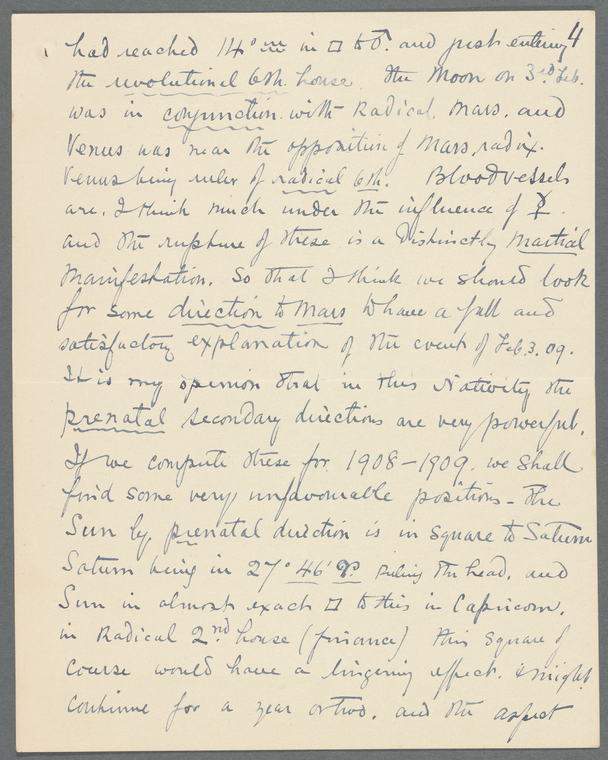 4
had reached 14° ♏ in □ to ♂. and just entering
the revolutional 6th. house. The Moon on 3rd Feb.
was in conjunction with Radical. Mars. and
Venus was near the opposition of Mars, radix.
Venus being ruler of radical 6th. Bloodvessels
are. I think much under the influence of ♀.
and the rupture of these is a Distinctly Martial
Manifestation. So that I think we should look
for some direction to Mars to have a full and
satisfactory explanation of the event of Feb. 3. 09.
It is my opinion that in this Nativity the
prenatal secondary directions are very powerful.
If we compute these for 1908–1909. we shall
find some very unfavourable positions – The
Sun by. prenatal direction is in square to Saturn
Saturn being in 27° 46' ♈. ruling the head, and
Sun in almost exact □ to this in Capricorn.
in Radical 2nd house (finance) this square of
course would have a lingering effect. & might
continue for a year or two. and the aspect